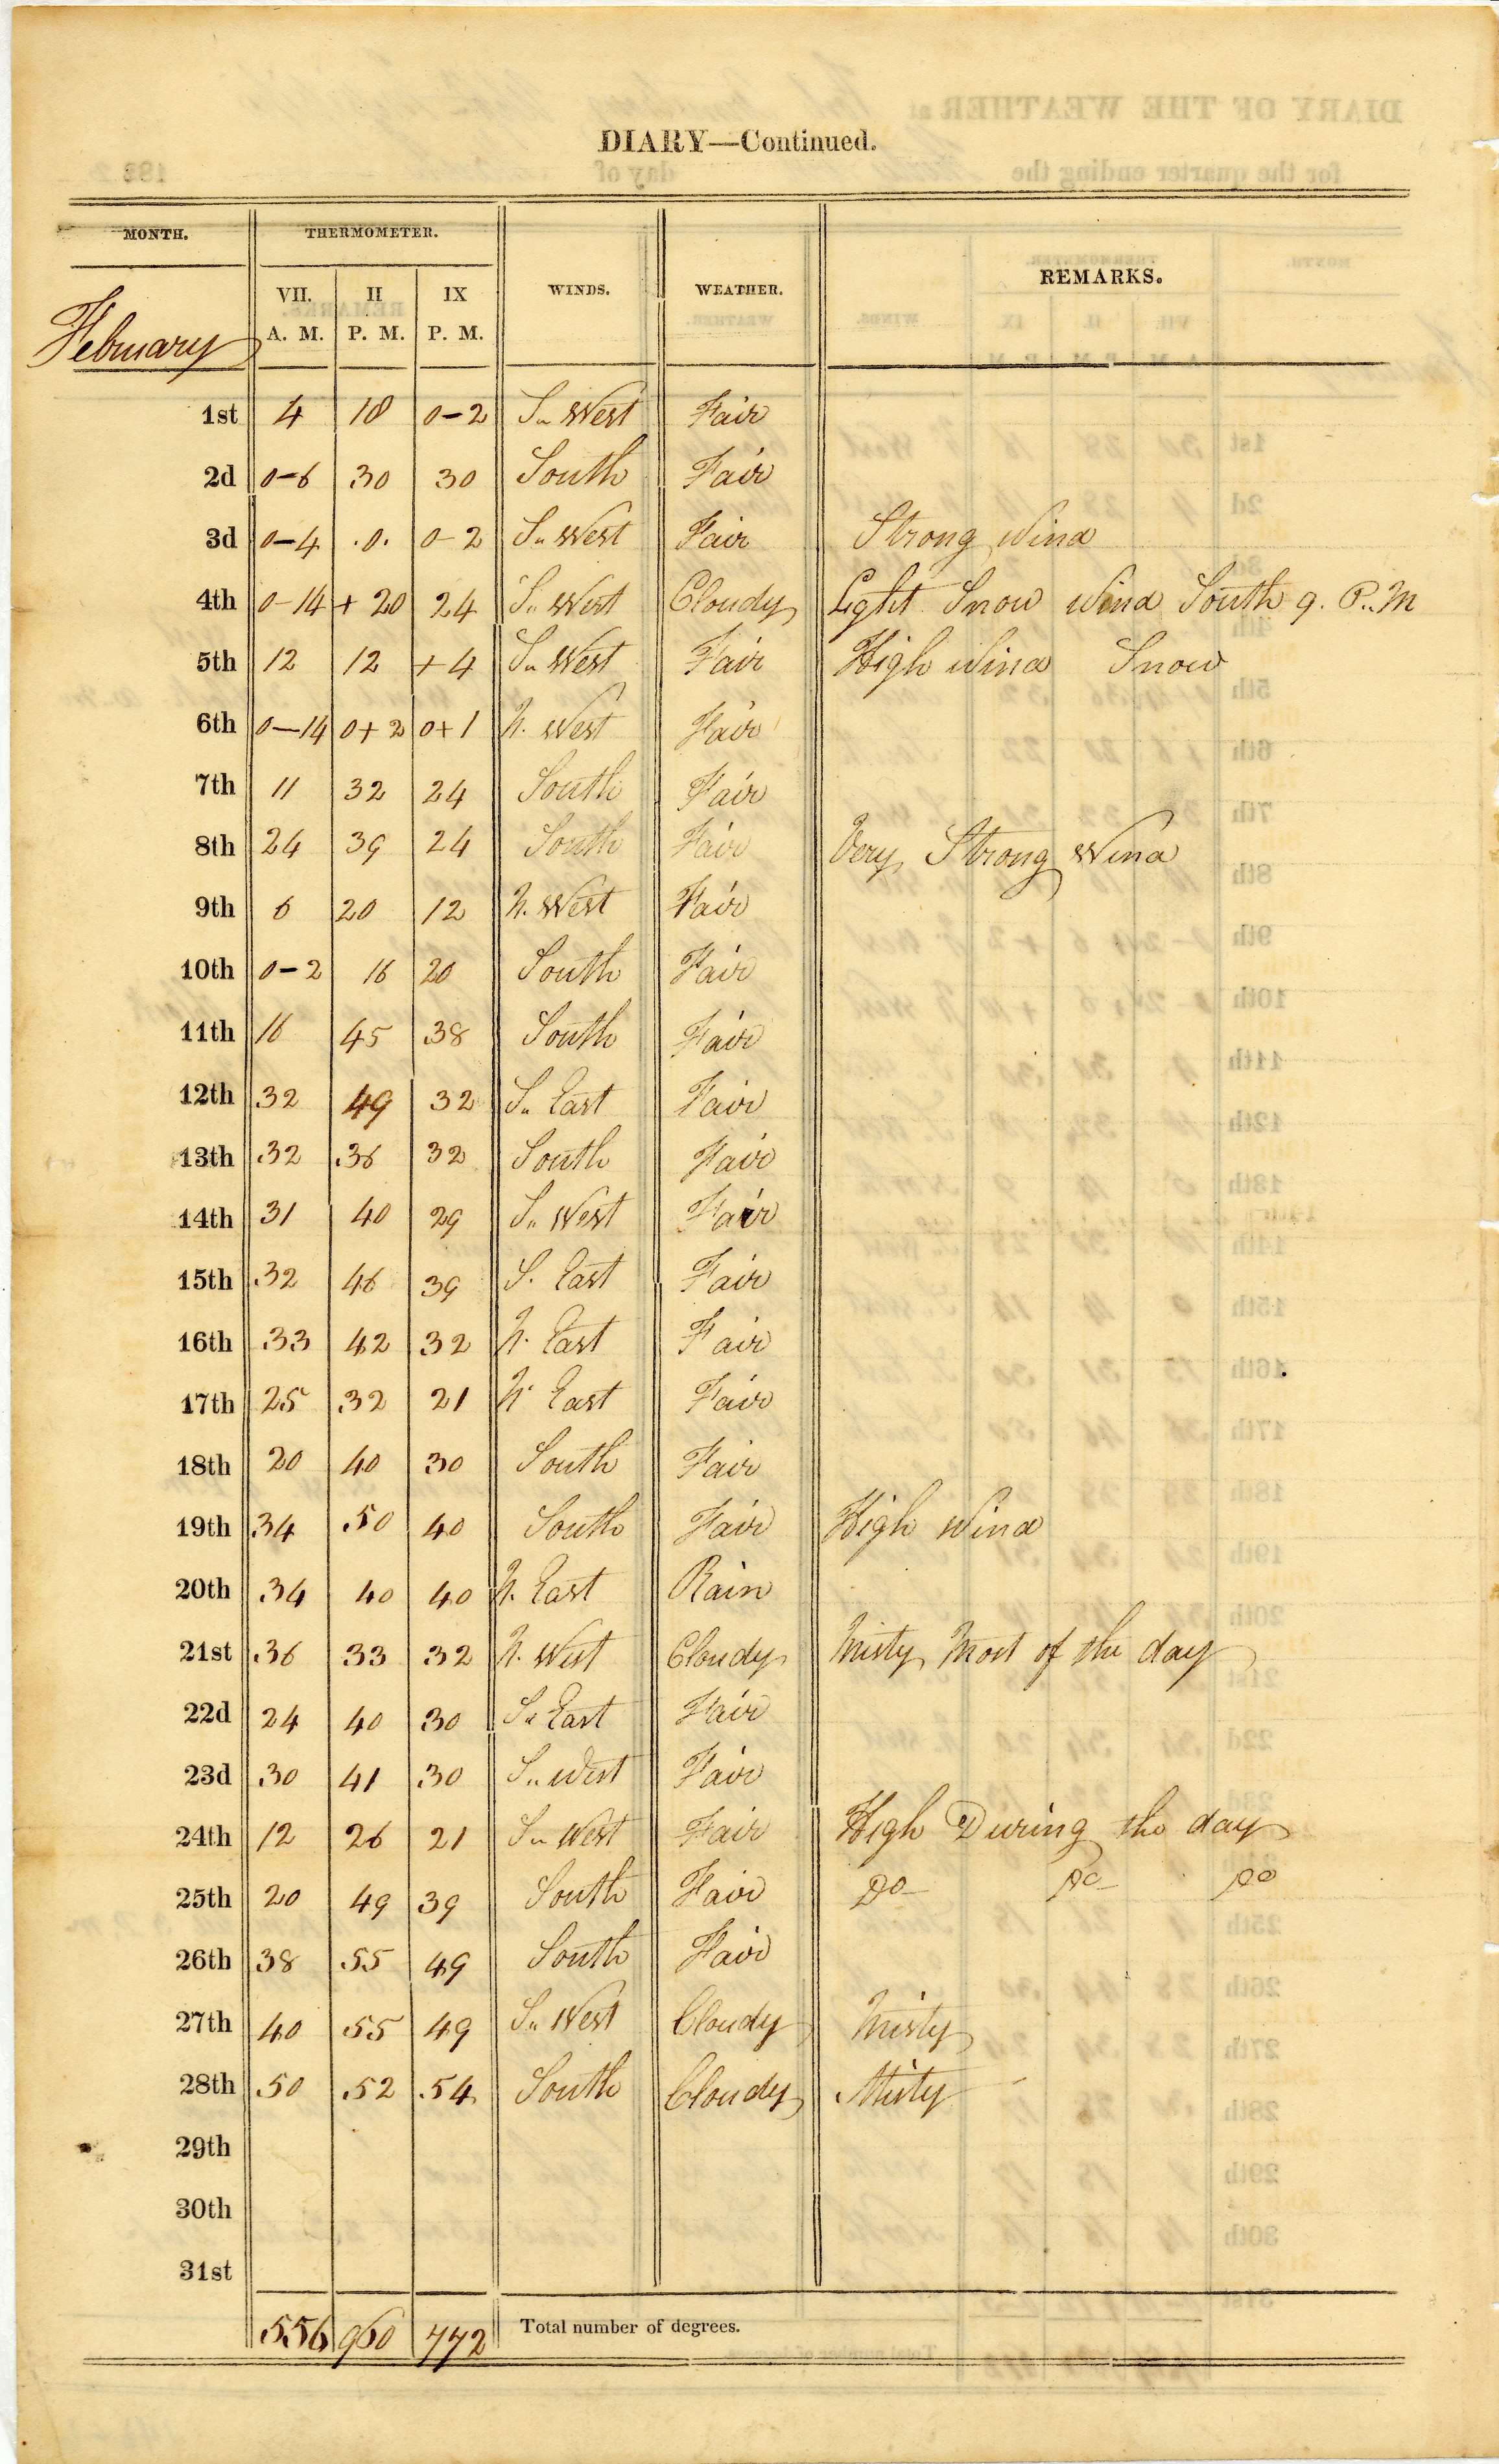 DIARY—Continued.
MONTH. THERMOMETER. WINDS. WEATHER. REMARKS.
VII. II IX
A. M. P. M. P. M.
February
1st 4 18 0-2 S.. West Fair
2d 0-6 30 30 South Fair
3d 0-4 .0. 0-2 S.. West Fair Strong Wind
4th 0-14 + 20 24 S.. West Cloudy Light Snow Wind South 9. P..M
5th 12 12 +4 S.. West Fair High Wind Snow
6th 0-14 0+2 0+1 N. West Fair
7th 11 32 24 South Fair
8th 24 39 24 South Fair Very Strong Wind
9th 6 20 12 N. West Fair
10th 0-2 16 20 South Fair
11th 16 45 38 South Fair
12th 32 49 32 S.. East Fair
13th 32 36 32 South Fair
14th 31 40 29 S.. West Fair
15th 32 46 39 S. East Fair
16th 33 42 32 N. East Fair
17th 25 32 21 N. East Fair
18th 20 40 30 South Fair
19th 34 50 40 South Fair High Wind
20th 34 40 40 N. East Rain
21st 36 33 32 N. West Cloudy Misty Most of the day
22d 24 40 30 S.. East Fair
23d 30 41 30 S.. West Fair
24th 12 26 21 S.. West Fair High During the day
25th 20 49 39 South Fair Do Do Do
26th 38 55 49 South Fair
27th 40 55 49 S.. West Cloudy Misty
28th 50 52 54 South Cloudy Misty
29th
30th
31st
556 960 772 Total number of degrees.